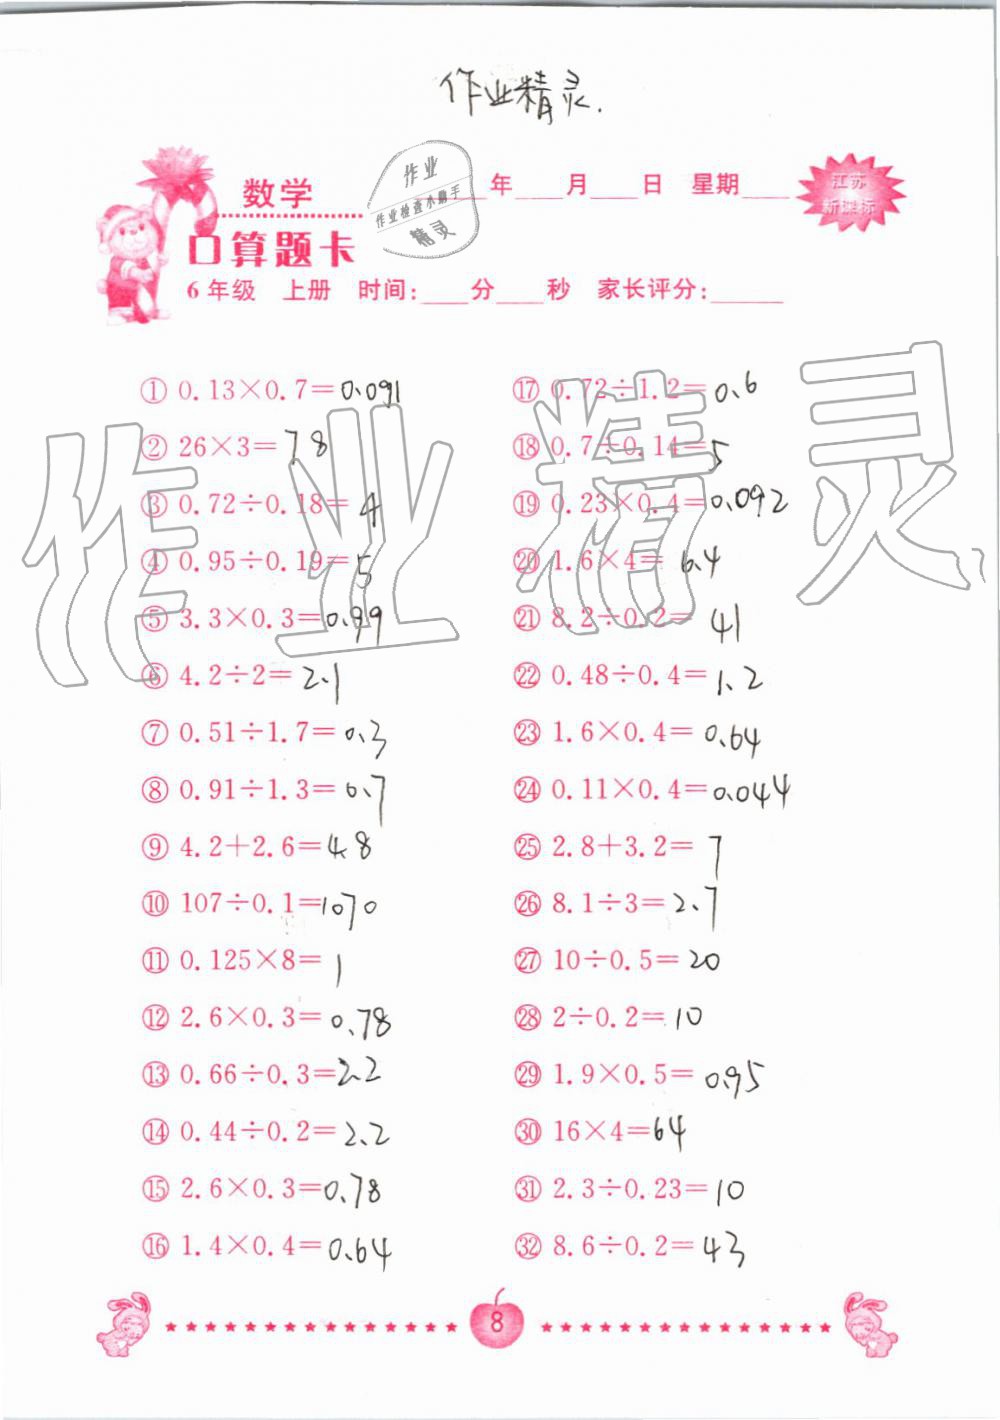 作业精灵.
作业
作业检查小助手
精灵
数学 年 月 日 星期
江苏
新课标
口算题卡
6年级 上册 时间: 分 秒 家长评分:
① 0.13×0.7=0.091
② 26×3=78
③ 0.72÷0.18=4
④ 0.95÷0.19=5
⑤ 3.3×0.3=0.99
⑥ 4.2÷2=2.1
⑦ 0.51÷1.7=0.3
⑧ 0.91÷1.3=0.7
⑨ 4.2+2.6=4.8
⑩ 107÷0.1=1070
⑪ 0.125×8=1
⑫ 2.6×0.3=0.78
⑬ 0.66÷0.3=2.2
⑭ 0.44÷0.2=2.2
⑮ 2.6×0.3=0.78
⑯ 1.4×0.4=0.64
⑰ 0.72÷1.2=0.6
⑱ 0.7÷0.14=5
⑲ 0.23×0.4=0.092
⑳ 1.6×4=6.4
㉑ 8.2÷0.2=41
㉒ 0.48÷0.4=1.2
㉓ 1.6×0.4=0.64
㉔ 0.11×0.4=0.044
㉕ 2.8+3.2=7
㉖ 8.1÷3=2.7
㉗ 10÷0.5=20
㉘ 2÷0.2=10
㉙ 1.9×0.5=0.95
㉚ 16×4=64
㉛ 2.3÷0.23=10
㉜ 8.6÷0.2=43
作业精灵
8